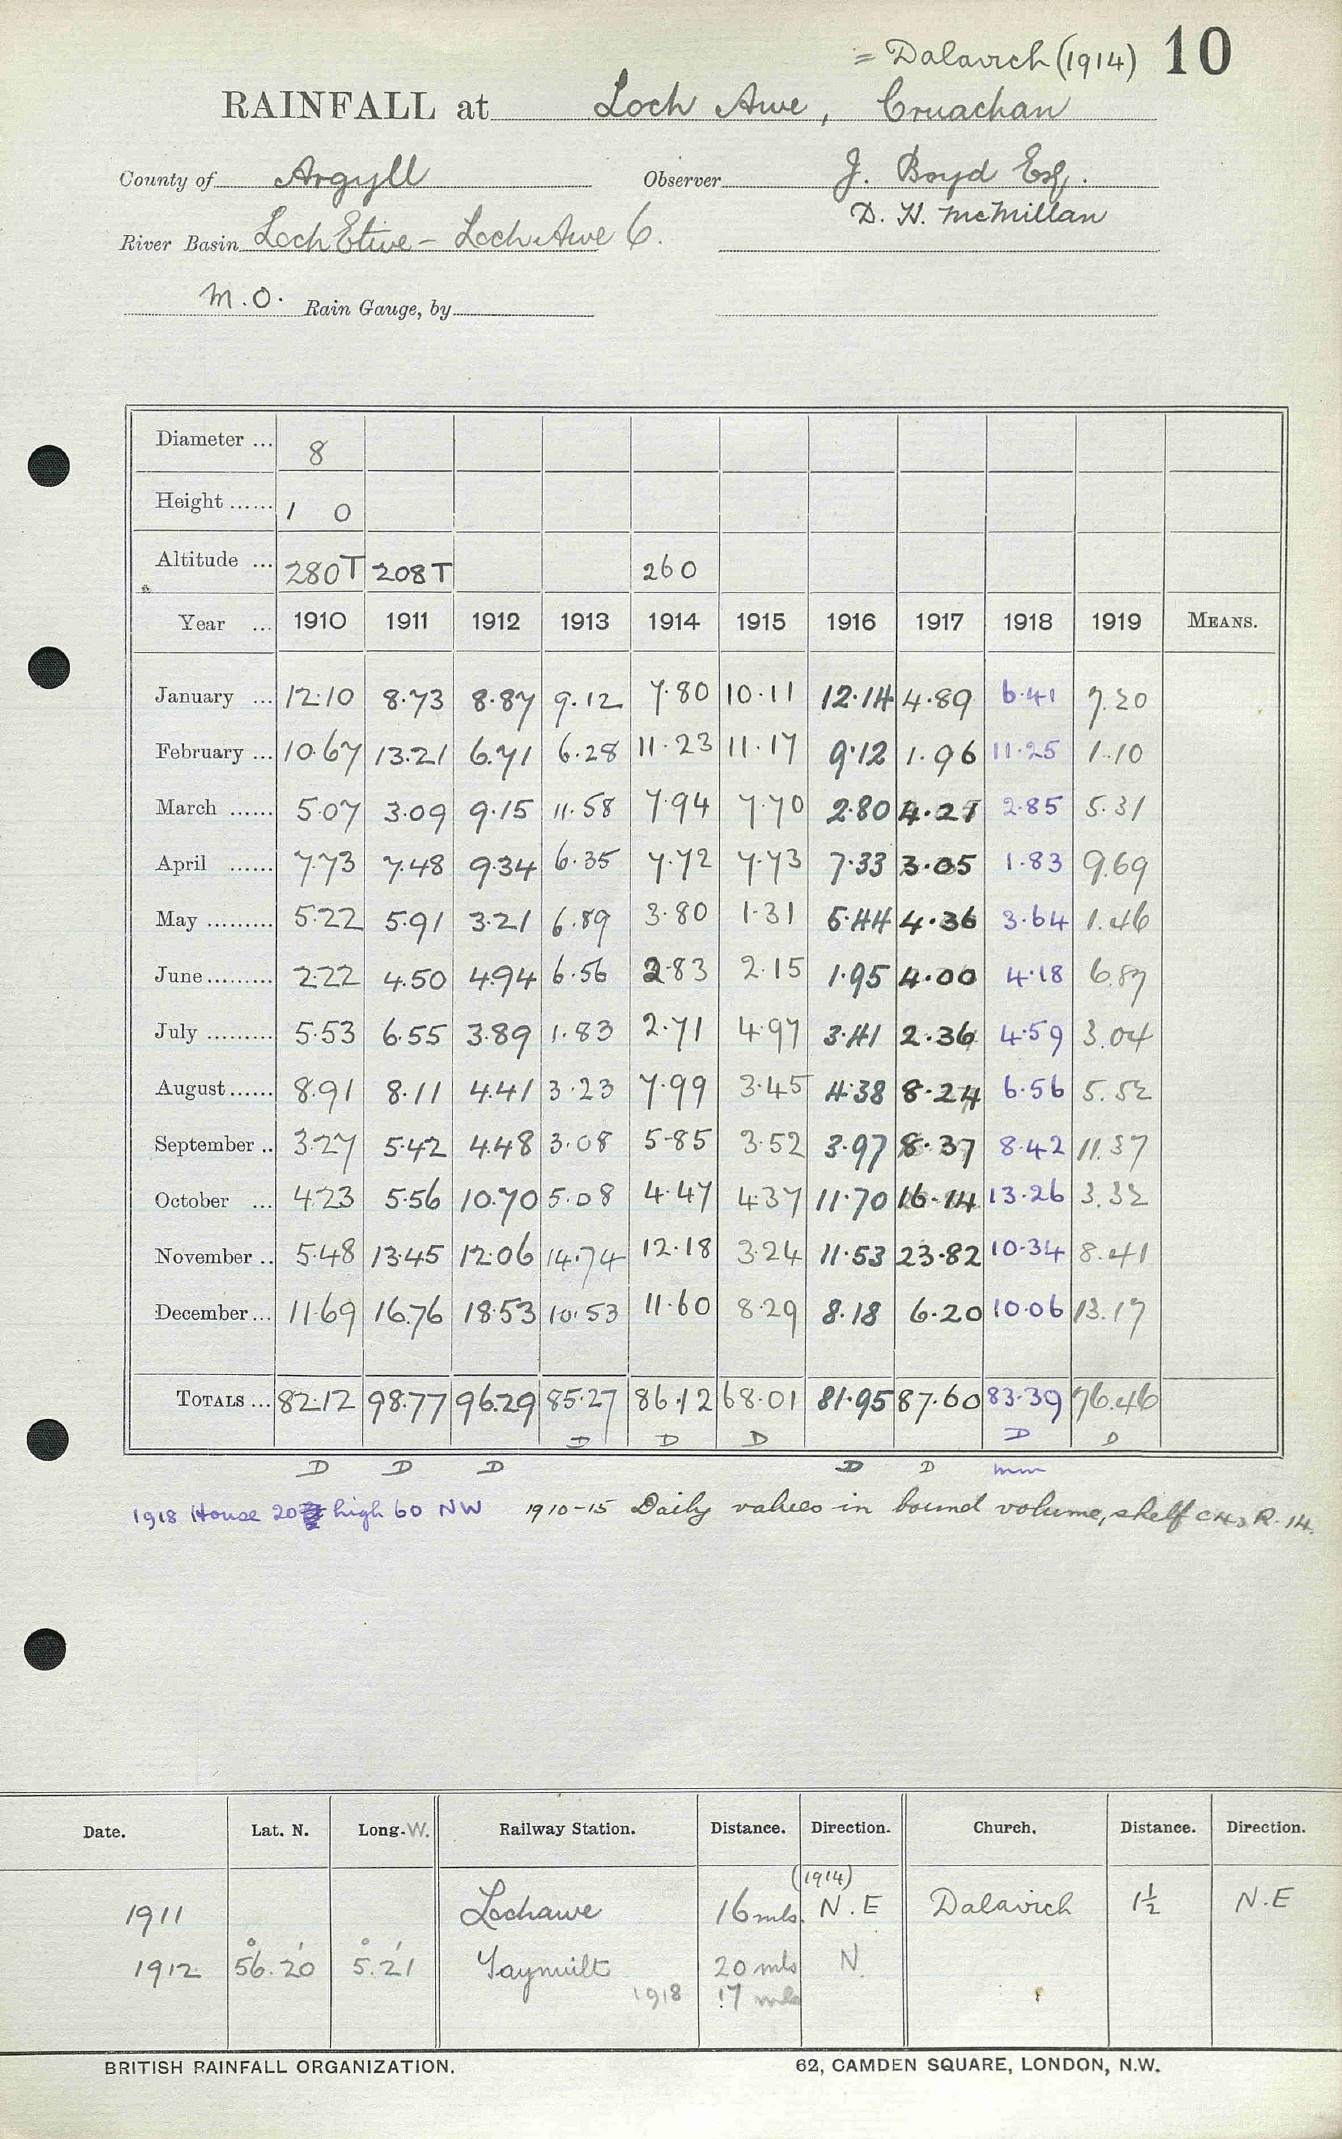 = Dalavich (1914) 10
RAINFALL at Loch Awe, Cruachan
County of Argyll Observer J. Boyd Esq.
D. H. McMillan
River Basin Loch Etive - Loch Awe 6.
M.O. Rain Gauge, by
Diameter ... 8
Height ...... 1 0
Altitude ... 280T 208T 260
Year ... 1910 1911 1912 1913 1914 1915 1916 1917 1918 1919 MEANS.
January ... 12.10 8.73 8.87 9.12 7.80 10.11 12.14 4.89 6.41 7.20
February ... 10.67 13.21 6.71 6.28 11.23 11.17 9.12 1.96 11.25 1.10
March ...... 5.07 3.09 9.15 11.58 7.94 7.70 2.80 4.21 2.85 5.31
April ...... 7.73 7.48 9.34 6.35 7.72 7.73 7.33 3.05 1.83 9.69
May ......... 5.22 5.91 3.21 6.89 3.80 1.31 5.44 4.36 3.64 1.46
June ......... 2.22 4.50 4.94 6.56 2.83 2.15 1.95 4.00 4.18 6.87
July ......... 5.53 6.55 3.89 1.83 2.71 4.97 3.41 2.36 4.59 3.04
August...... 8.91 8.11 4.41 3.23 7.99 3.45 4.38 8.24 6.56 5.52
September .. 3.27 5.42 4.48 3.08 5.85 3.52 3.97 8.37 8.42 11.37
October ... 4.23 5.56 10.70 5.08 4.47 4.37 11.70 16.14 13.26 3.32
November .. 5.48 13.45 12.06 14.74 12.18 3.24 11.53 23.82 10.34 8.41
December... 11.69 16.76 18.53 10.53 11.60 8.29 8.18 6.20 10.06 13.17
TOTALS ... 82.12 98.77 96.29 85.27 86.12 68.01 81.95 87.60 83.39 76.46
D D D D D
D D D D D mm
1918 House 20 high 60 NW 1910-15 Daily values in bound volume, shelf R. 14.
Date. Lat. N. Long. W. Railway Station. Distance. Direction. Church. Distance. Direction.
(1914)
1911 Lochawe 16 mls. N.E Dalavich 1½ N.E
1912 56°.20' 5°.21' Taynuilt 20 mls N.
1918 17 mls
BRITISH RAINFALL ORGANIZATION. 62, CAMDEN SQUARE, LONDON, N.W.